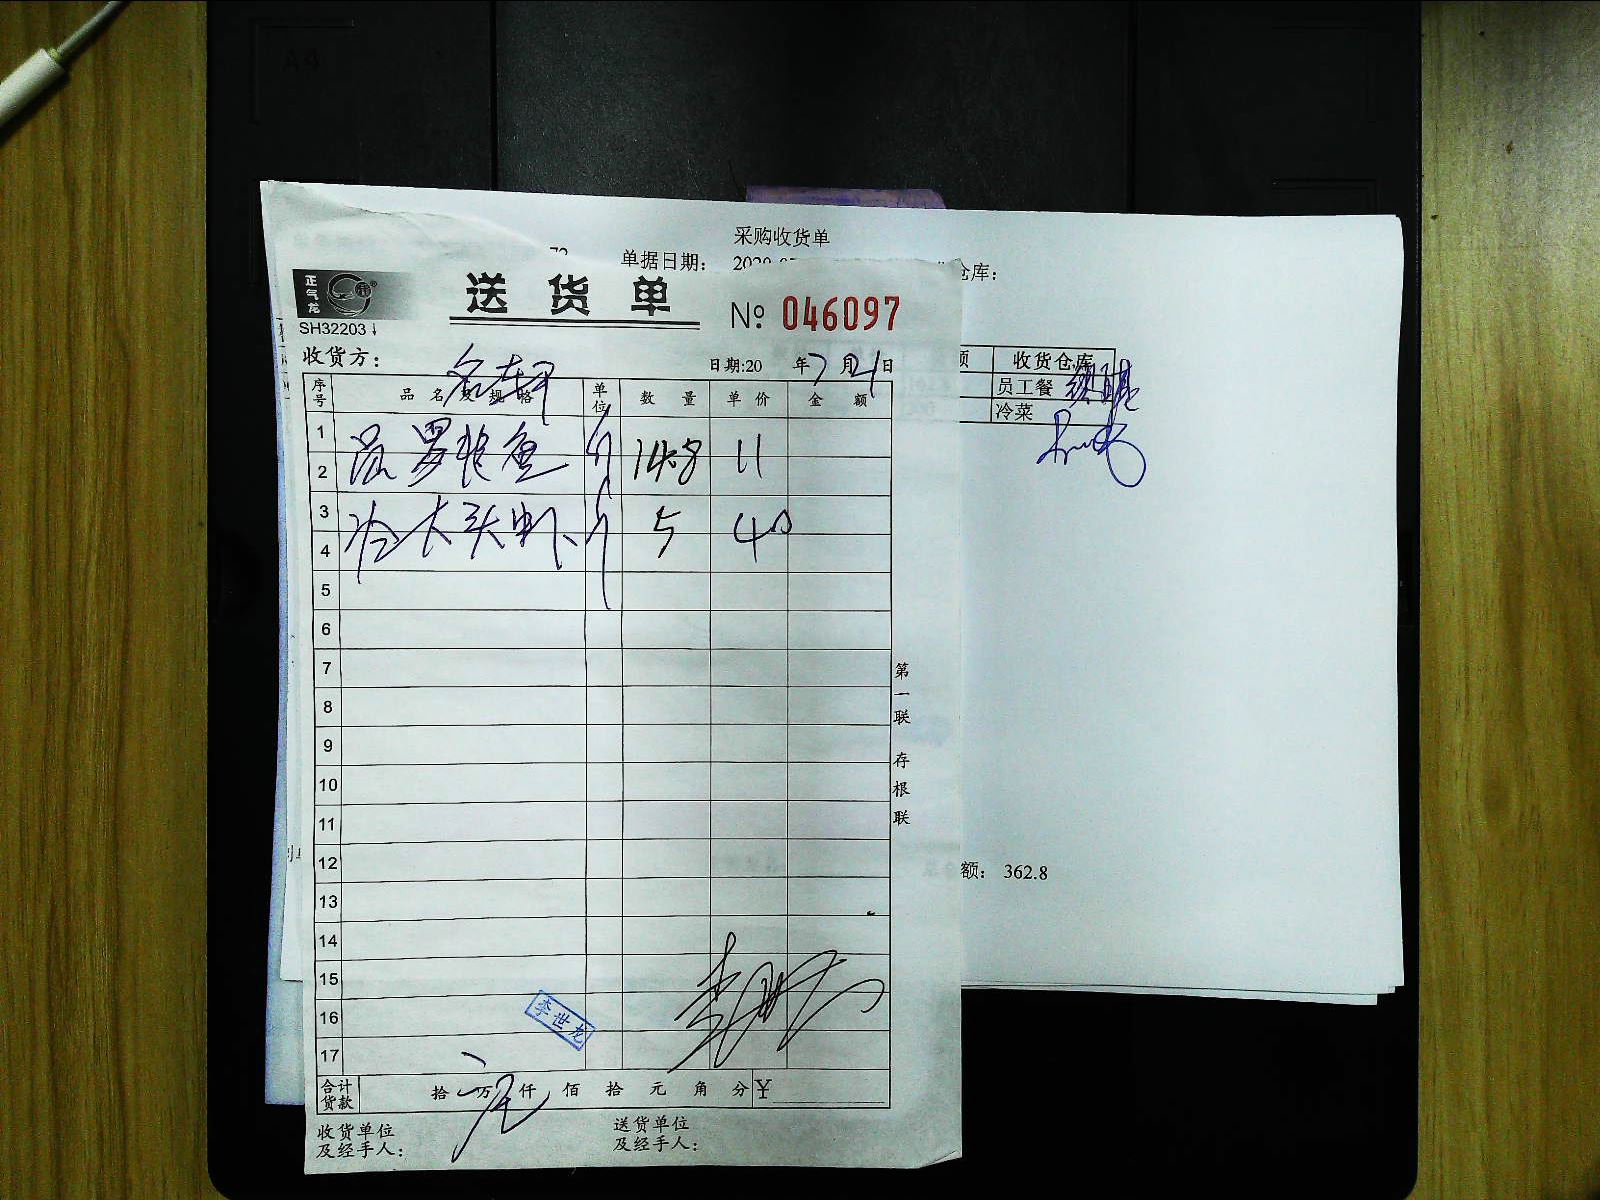 采购收货单
单据日期：
仓库：
正气龙
送货单
№ 046097
SH32203
收货方：
日期:20 年7月21日
额 收货仓库
员工餐
冷菜
序号 品名及规格 单位 数量 单价 金额
1
2 罗非鱼 斤 14.8 11
3
4 冷大头虾 斤 5 40
5
6
7
8
9
10
11
12
13
14
15
16
17
第一联 存根联
额： 362.8
李世龙
合计货款 拾 万 仟 佰 拾 元 角 分 ¥
收货单位及经手人：
送货单位及经手人：